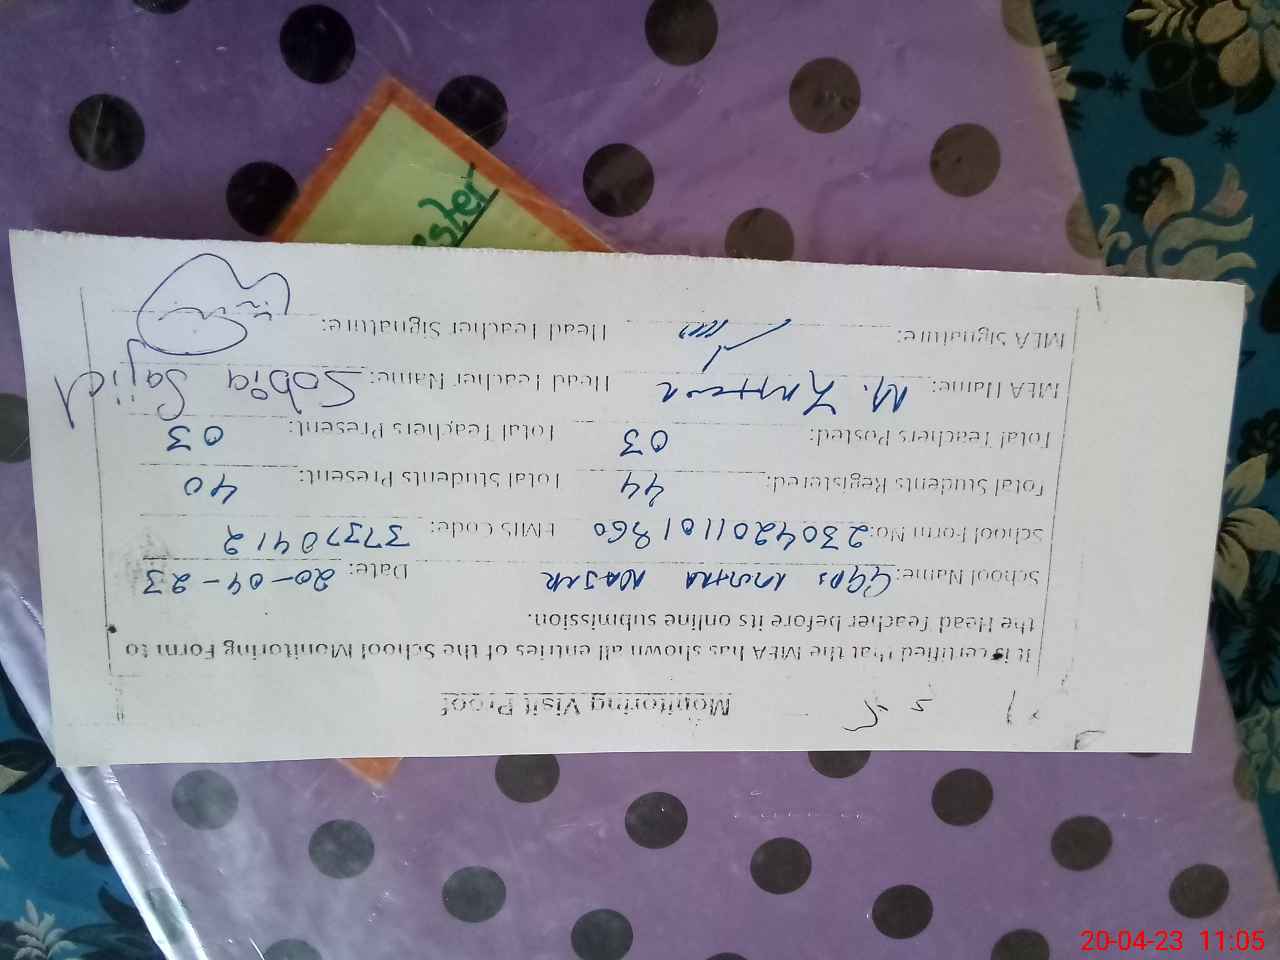 Monitoring Visit Proof
It is certified that the MEA has shown all entries of the School Monitoring Form to
the Head Teacher before its online submission.
School Name: GGPS NASIR Date: 20-04-23
School Form No: 2304201101860 EMIS Code: 37370412
Total Students Registered: 44 Total Students Present: 40
Total Teachers Posted: 03 Total Teachers Present: 03
MEA Name: M. Head Teacher Name: Sobia Sajid
MEA Signature: Head Teacher Signature:
ester
20-04-23 11:05